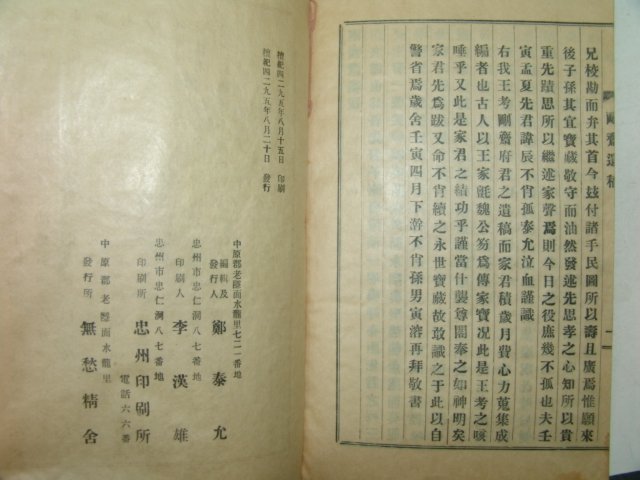 剛齋遺稿
兄校勘而弁其首今玆付諸手民圖所以壽且廣焉惟願來
後子孫其宜寶藏敬守而油然發述先思孝之心知所以貴
重先蹟思所以繼述家聲焉則今日之役庶幾不孤也夫壬
寅孟夏先君諱辰不肖孤泰允泣血謹識
右我王考剛齋府君之遺稿而家君積歲月費心力蒐集成
編者也古人以王家氈魏公笏爲傳家寶况此是王考之咳
唾乎又此是家君之績功乎謹當什襲尊閣奉之如神明矣
家君先爲跋又命不肖續之永世寶藏故敢識之于此以自
警省焉歲舍壬寅四月下澣不肖孫男寅溶再拜敬書
檀紀四二九五年八月十五日 印刷
檀紀四二九五年八月二十日 發行
中原郡老隱面水龍里七二一番地
編輯及發行人 鄭泰允
忠州市忠仁洞八七番地
印刷人 李漢雄
忠州市忠仁洞八七番地
印刷所 忠州印刷所
電話六六番
中原郡老隱面水龍里
發行所 無愁精舍